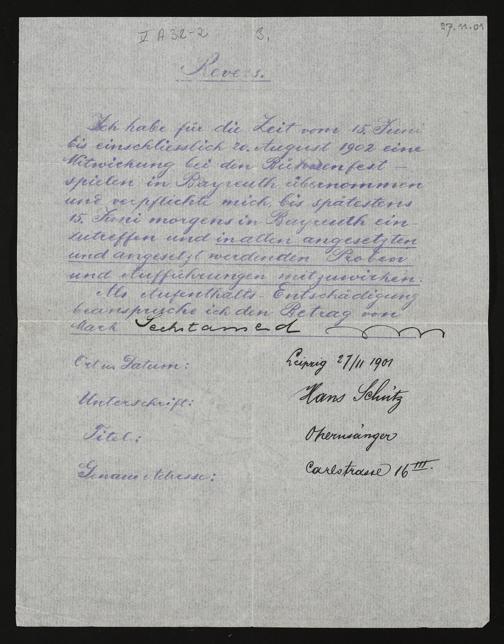 V A 32-2 3. 27.11.01
Revers.
Ich habe für die Zeit vom 15. Juni
bis einschliesslich 20. August 1902 eine
Mitwirkung bei den Bühnenfest-
spielen in Bayreuth übernommen
und verpflichte mich, bis spätestens
15. Juni morgens in Bayreuth ein-
zutreffen und in allen angesetzten
und angesetzt werdenden Proben
und Aufführungen mitzuwirken.
Als Aufenthalts-Entschädigung
beanspruche ich den Betrag von
Mark Sechstausend
Ort u. Datum: Leipzig 27/11 1901
Unterschrift: Hans Schütz
Titel: Opernsänger
Genaue Adresse: Carlstrasse 16 III.